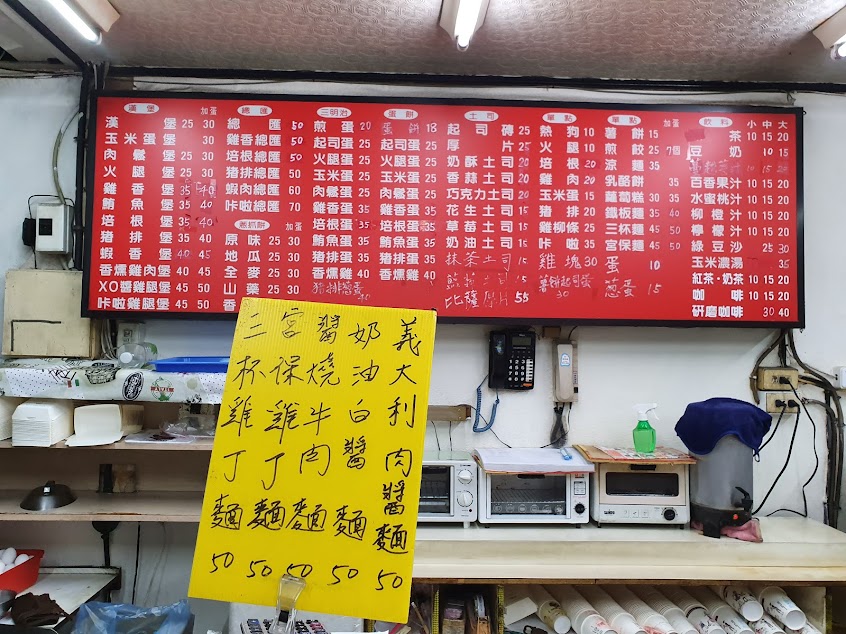 漢堡 加蛋
漢堡 25 30
玉米蛋堡 30
肉鬆堡 25 30
火腿堡 25 30
雞香堡 35 40
鮪魚堡 35 40
培根堡 35 40
豬排堡 35 40
蝦香堡 40 45
香燻雞肉堡 40 45
XO醬雞腿堡 45 50
咔啦雞腿堡 45 50
總匯
總匯 50
雞香總匯 50
培根總匯 50
豬排總匯 50
蝦肉總匯 60
咔啦總匯 70
蔥抓餅 加蛋
原味 25 30
地瓜 25 30
全麥 25 30
山藥 25 30
香
三明治
煎蛋 20
起司蛋 25
火腿蛋 25
玉米蛋 25
肉鬆蛋 25
雞香蛋 35
培根蛋 35
鮪魚蛋 35
豬排蛋 35
香燻雞 40
蛋餅
蛋餅 18
起司蛋 25
火腿蛋 25
玉米蛋 25
肉鬆蛋 25
雞香蛋 35
培根蛋 35
鮪魚蛋 35
豬排蛋 35
香燻雞 40
吐司
起司磚 25
厚片 25
奶酥土司 20
香蒜土司 20
巧克力土司 20
花生土司 15
草苗土司 15
奶油土司 15
抹茶土司 15
土司 15
比薩厚片 55
單點
熱狗 10
火腿 10
培根 20
雞肉 20
玉米蛋 15
豬排 20
雞柳條 25
咔啦 35
雞塊 30
薯餅起司蛋 30
單點 加蛋
薯餅 15
煎餃 25 7個
涼麵 35
乳酪餅 35
蘿蔔糕 30 35
鐵板麵 35 40
三杯麵 45 50
宮保麵 45 50
蛋 10
蔥蛋 15
飲料 小 中 大
茶 10 15 20
豆奶 10 15
百香果汁 10 15 20
水蜜桃汁 10 15 20
柳橙汁 10 15 20
檸檬汁 10 15 20
綠豆沙 25 30
玉米濃湯 35
紅茶·奶茶 10 15 20
咖啡 10 15 20
研磨咖啡 30 40
三杯雞丁麵 50
宮保雞丁麵 50
醬燒牛肉麵 50
奶油白醬麵 50
義大利肉醬麵 50